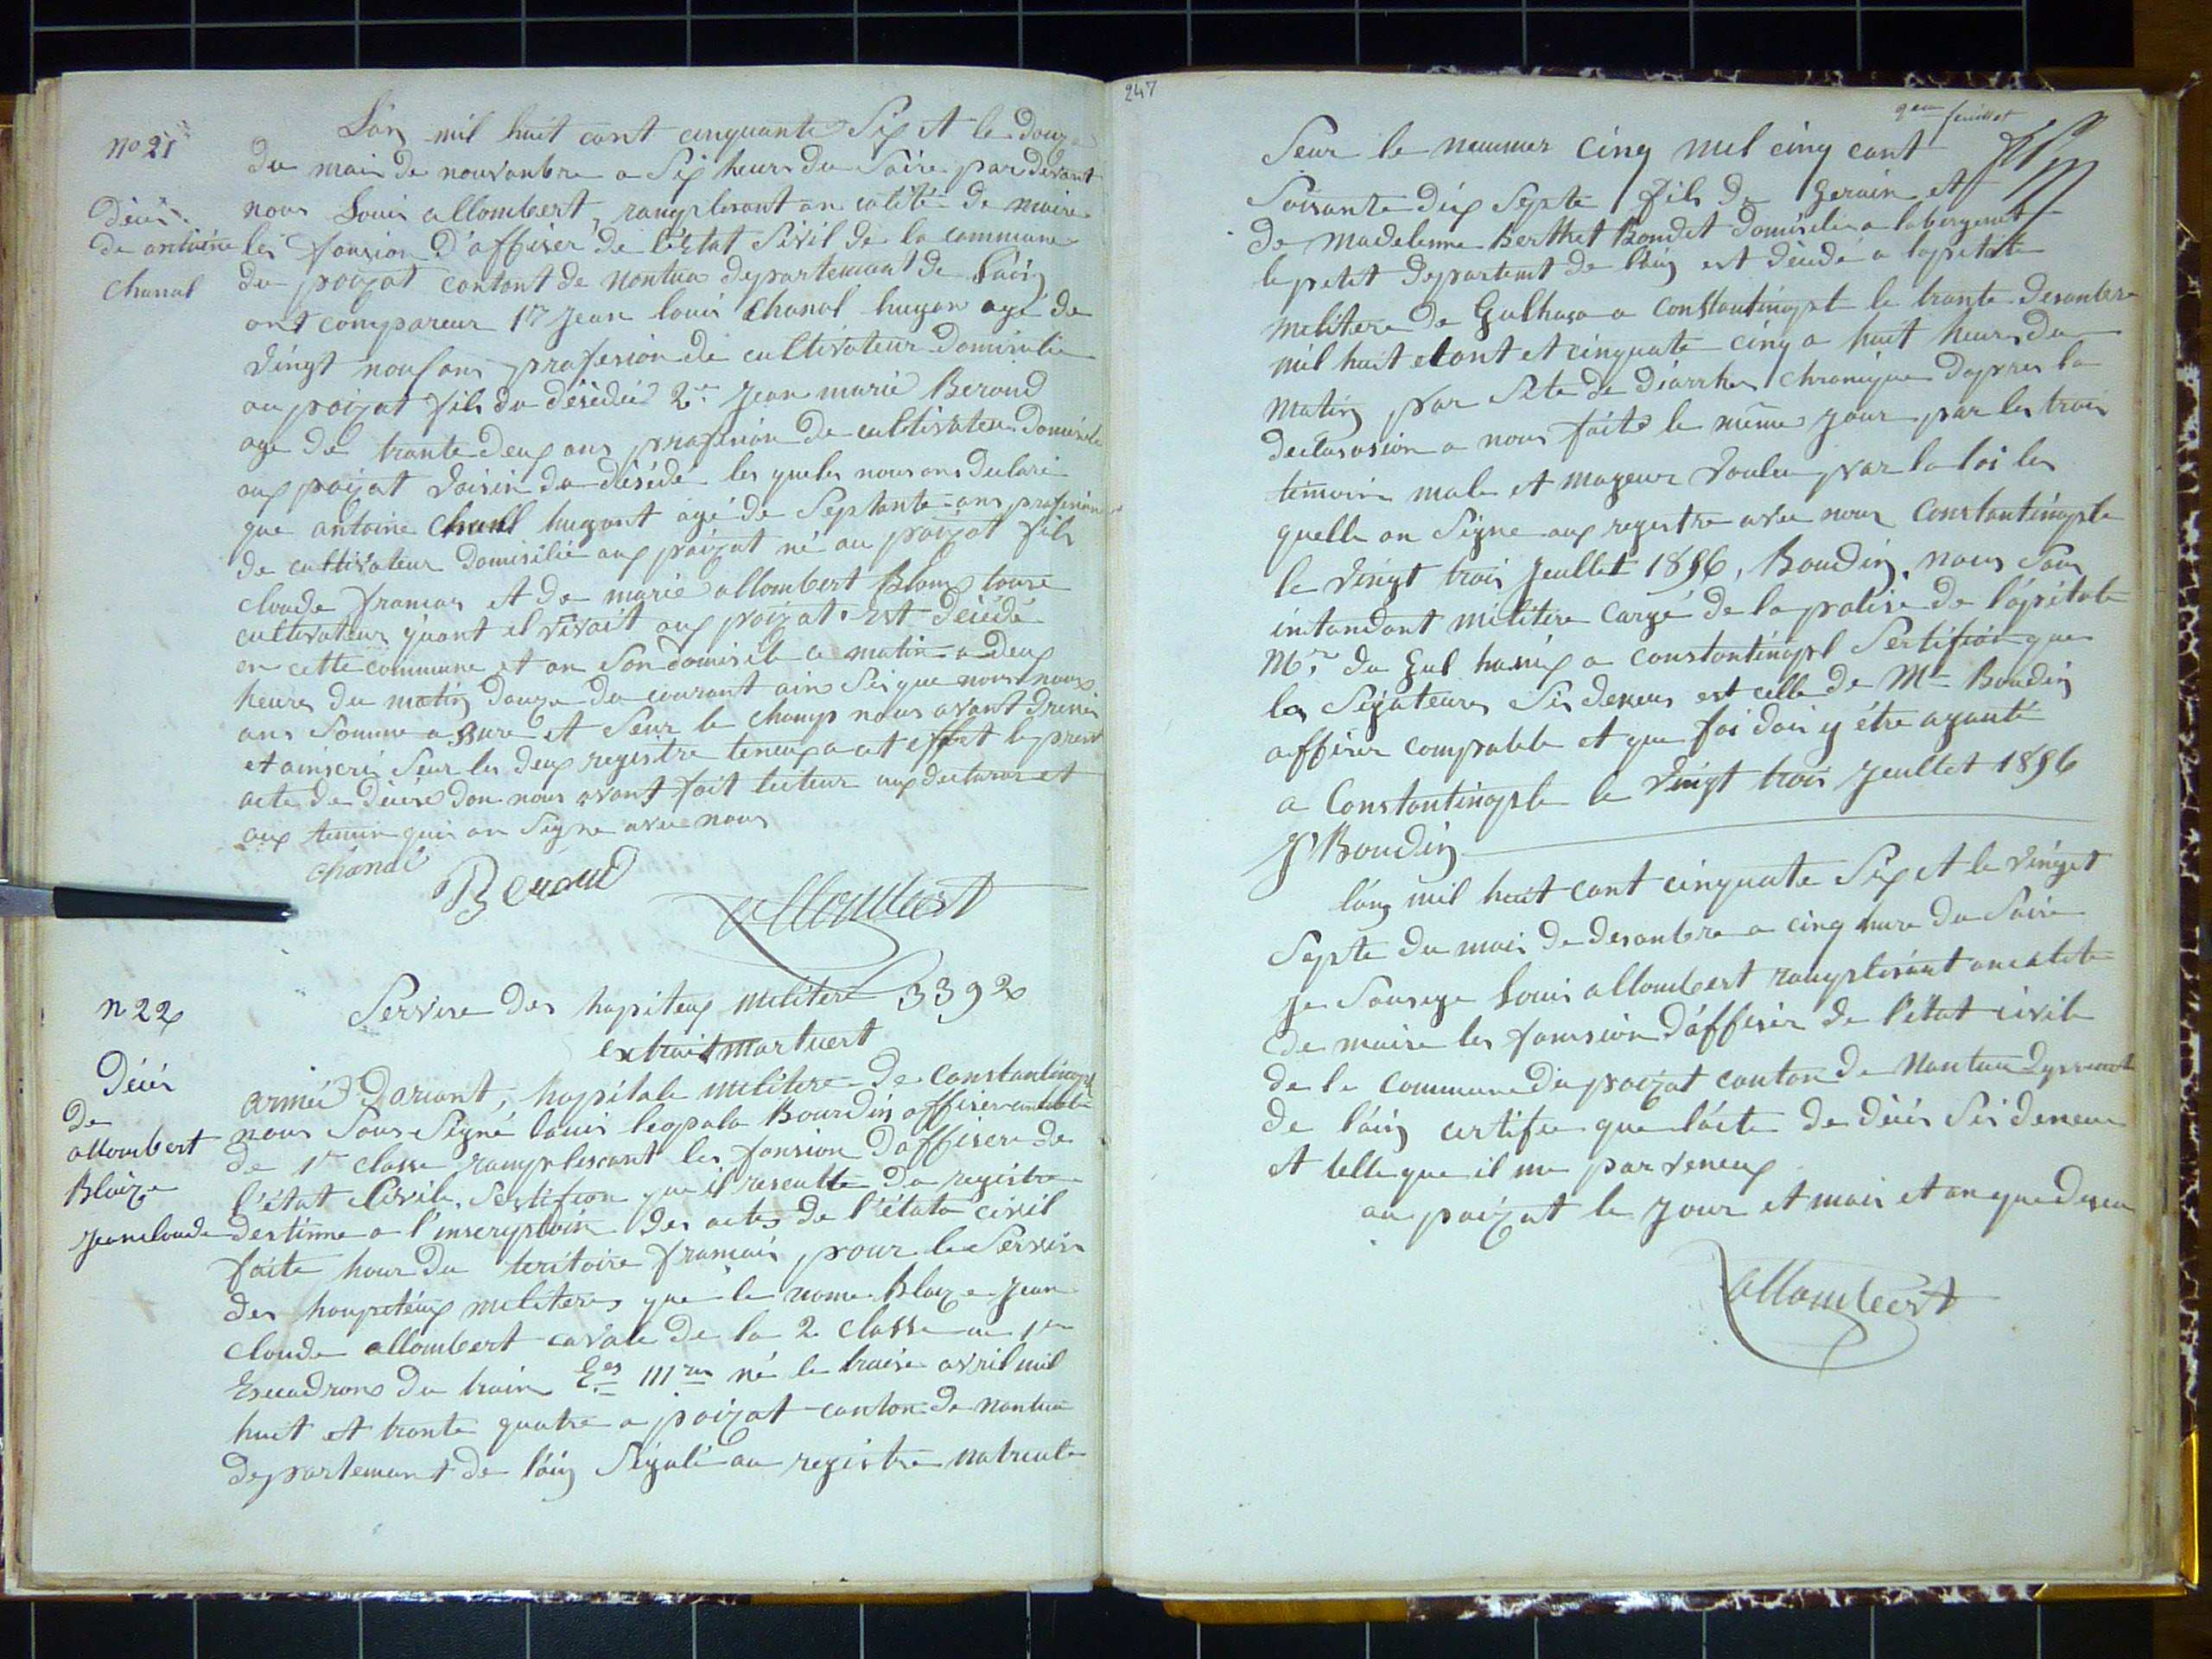 No 21
Décès
de antoine
chanal
L'an mil huit cant cinquante Six et le douze
du mois de nouvanbre a Six heurs du Soire par devant
nous Louis allombert, ramplisant an calité de maire
les fonsion D'affiser de l'État Sivil de la commune
du poizat contont de Nantua departemant de l'ain
ont compareur 1er Jean louis Chanal hugon agé de
vingt nouf ans profesion de cultivateur domisilié
au poizat fils du désédé 2e Jean marie Beroud
age de trante deux ans profesion de cultivateur domisilie
aux poizat voisin du désédé les queles nous ons declaré
que antoine Chanal hugont agé de Septante ans profesion
de cultivateur domisilié aux poizat né au poizat fils
cloude framcos et de marie allombert Blanc
cultivateur quant il vivait aux poizat. Est décédé
en cette commune et an Son domisile ce matin a deux
heures du matin douze du courant ains Si que nous nous
ans Somme asure et Seur le champs nous avont
et ainscri Seur les deux registre teneux a cet effet le presnt
acte de décése don nous avont fait lecteur aux declaros et
aux temin qui an Signe avec nous
chanal Beroud
allombert
n 22
Décés
de
allombert
Blaize
Jean cloude
Servise des hopiteux militere 3392
extrait mortuert
armée Doriant, hopitale militere de Constantinopl
nous Sous Signé louis leopala Bourdin affiser
de 1er classe ramplesant les fonsion Daffisere de
l'état Civile. Sertifion que il reseulte du registre
destinne a l'inscriptoin des actes de l'étata civil
faite hour du teritoire framçais pour le Servise
des houpiteux militeres que le nome Blaize Jean
Cloude allombert cavale de la 2 classe au 1er
Escadrons du train Ées né le traise avril mil
huit et trante quatre a poizat canton de nantua
departemant de l'ain Sigalé au registre matricule
247
9eme feuillet
Seur le neumer cinq mil cinq cant
Soisante dix Septe fils de Gerain et
de Madelenne Berthet Bondet domisilié a labergemt
le petit departemt de l'ain est décédé a lopitale
militere de Gulhasa a Constantinople le trante desanbre
mil huit et cant et cinquate cinq a huit heurs du
matin par Sete de diarrhee chronique dapres la
declarasion a nous faite le même jour par les trois
temoin male et mageur vouleu par la loi les
quelle on Signe aux registre avec nous Constantinople
le vingt trois Jeullet 1856, Boudin, nous Sous
intandant militere cargé de la polise de l'opitale
Mre du Gul hanix a constantinopl Sertifion que
la Sigateure Sis deneus est celle de Mr Boudin
affiser compatble et que foi dois y être agouté
a Constantinople le vingt trois Jeullet 1856
Boudin
l'an mil huit cant cinquate Six et le vinget
Septe du mois de desanbre a cinq hure du Soire
je Sousige Louis allombert ramplisant an calité
de maire les fonsion d'affiser de l'état civile
de le commune du poizat canton de Nantua
de l'ain certifie que l'acte de décés Sis deneus
et telle que il me parveneux
au poizat le jour et mois et an que deseu
allombert